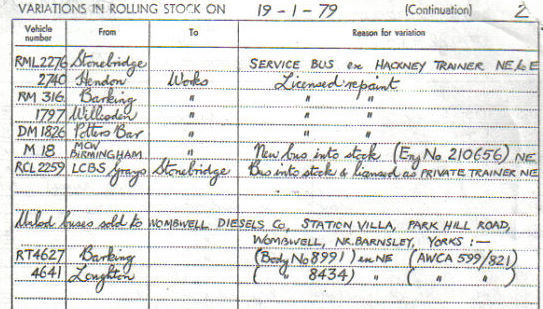 VARIATIONS IN ROLLING STOCK ON 19-1-79 (Continuation) 2
Vehicle number From To Reason for variation
RML2276 Stonebridge SERVICE BUS ex HACKNEY TRAINER NE to E
2740 Hendon Works Licensed repaint
RM 316 Barking " " "
1797 Willesden " " "
DM 1826 Potters Bar " " "
M 18 MCW BIRMINGHAM " New bus into stock (Eng No 210656) NE
RCL2259 LCBS Grays Stonebridge Bus into stock & licensed as PRIVATE TRAINER NE
buses sold to WOMBWELL DIESELS Co, STATION VILLA, PARK HILL ROAD,
WOMBWELL, NR. BARNSLEY, YORKS :—
RT4627 Barking (Body No 8991) ex NE (AWCA 599/821)
4641 Loughton ( " 8434) " ( " " )